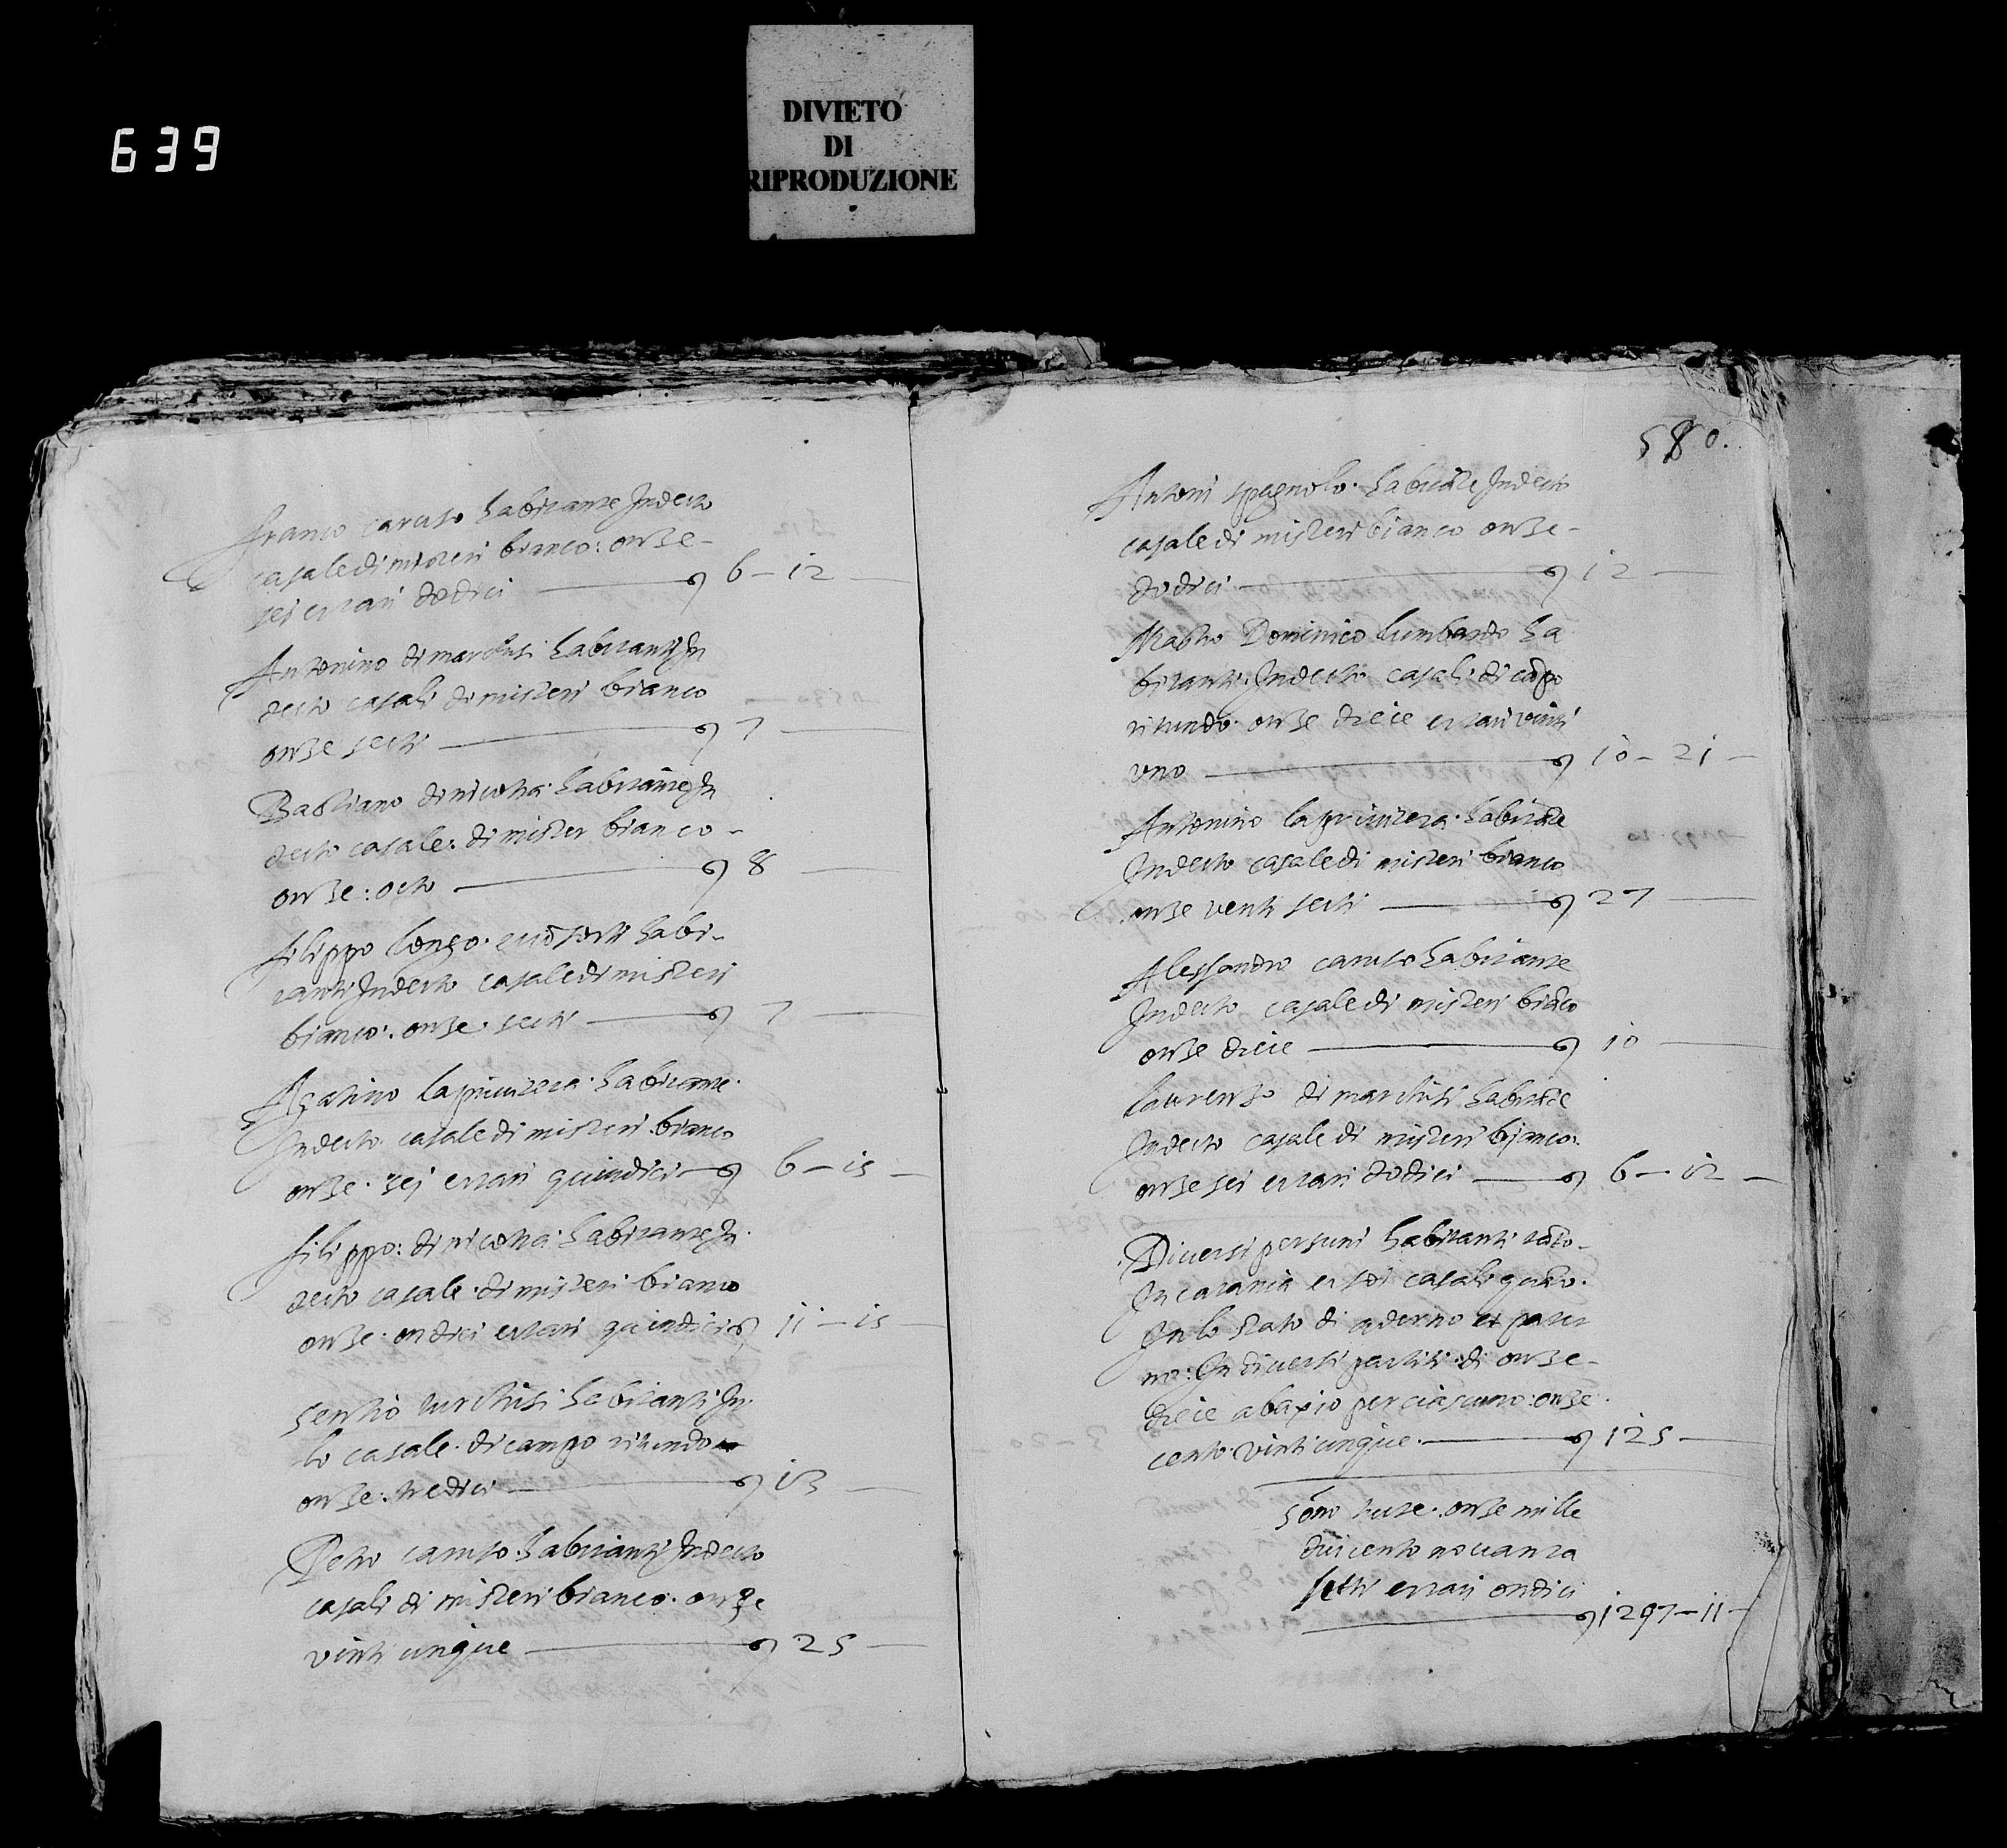 639
DIVIETO
DI
RIPRODUZIONE
Franco caruso habitante Indetto
casale di misteri bianco: onze -
sei et tari dodici 6 - 12
Antonino di marchisi habitanti In
detto casali di misteri bianco
onze setti 7
Bastiano di nicotra habitante In
detto casale: di mister bianco -
onze: octo 8
filippo longo habi-
tanti Indetto casale di misteri
bianco: onze setti 7
Agatino la primtera habitante
Indetto casale di misteri bianco
onze sej et tari quindici 6 - 15
filippo: di nicotra habitante In
detto casale di misteri bianco
onze ondici et tari quindici 11 - 15
habitanti In
lo casale di campo ritundo
onze: tredici 13
Petro caruso habitanti Indetto
casali di misteri bianco onze
vinti cinque 25
580.
Antoni spagnolo habitante Indetto
casale di misteri bianco onze -
dodici 12
Mastro Dominico lumbardo ha
bitanti Indetto casali di campo
ritundo onze diece et tari vinti
uno 10 - 21
Antonino la primtera habitante
Indetto casale di misteri bianco
onze venti setti 27
Alessandro caruso habitante
Indetto casale di misteri bianco
onze diece 10
laurenzo di marchisi habitante
Indetto casale di misteri bianco:
onze sei et tari dodici 6 - 12
Diversi persuni habitanti
In catania et soi casali
In lo stato di aderno et pater
no: In diversi partiti di onze -
diece abaxio per ciascuno: onze
cento vinti cinque 125
sono tutte onze mille
duicento novanta
setti et tari ondici
1297 - 11